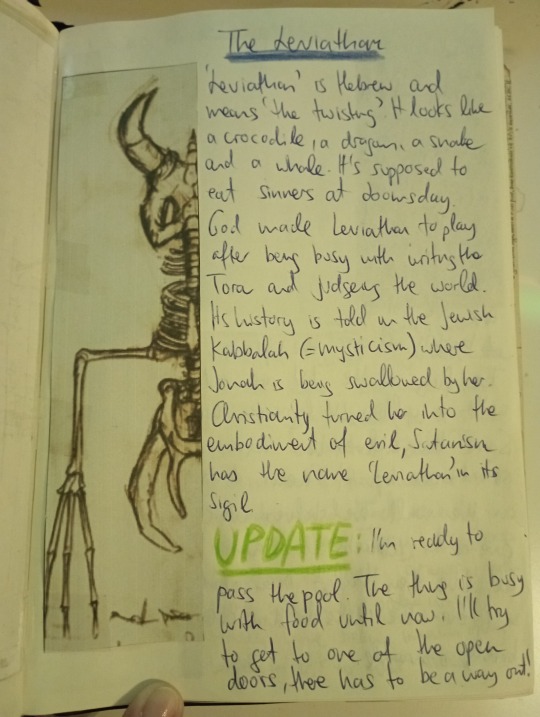 The Leviathan
'Leviathan' is Hebrew and
means 'the twisting'. It looks like
a crocodile, a dragon, a snake
and a whale. It's supposed to
eat sinners at doomsday.
God made Leviathan to play
after being busy with writing the
Tora and judgeing the world.
Its history is told in the Jewish
Kabbalah (=mysticism) where
Jonah is being swallowed by her.
Christianity turned her into the
embodiment of evil, Satanism
has the name 'Leviathan' in its
sigil.
UPDATE: I'm ready to
pass the pool. The thing is busy
with food until now. I'll try
to get to one of the open
doors, there has to be a way out!